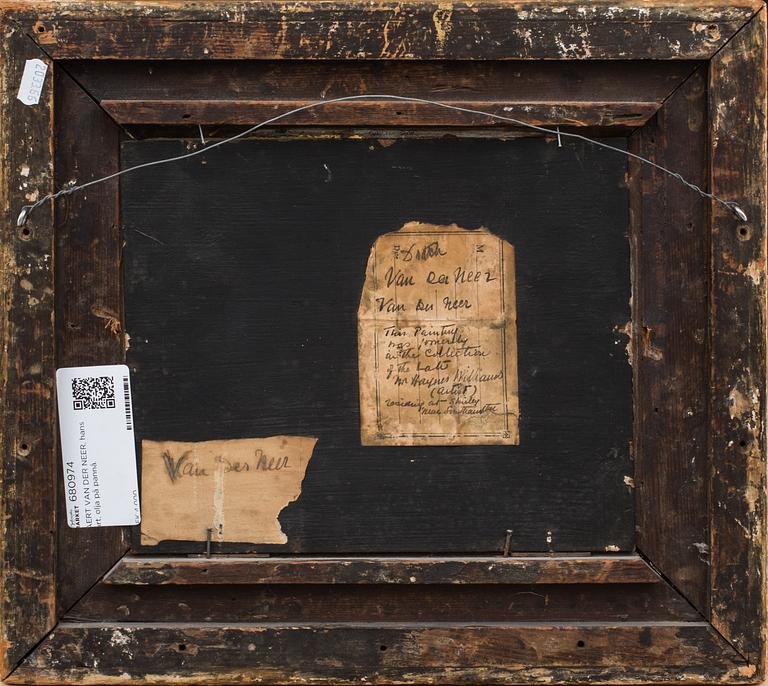 203386
Dutch
M
Van der Neer
Van der Neer
This Painting
was formerly
in the Collection
of the Late
Mr Haynes Williams
(artist)
residing at Shirley
near Southampton
Van Der Neer
680974
AERT VAN DER NEER, hans
art, olja på pannå.